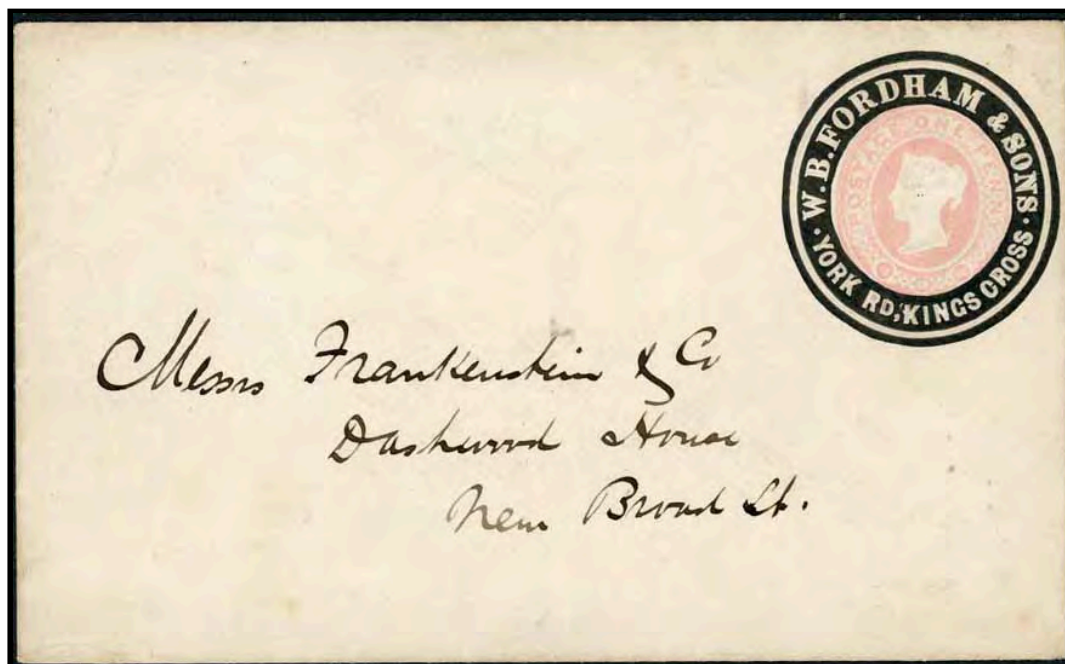 W. B. FORDHAM & SONS
YORK RD, KINGS CROSS
POSTAGE ONE PENNY
Messrs Frankenstein & Co
Dashwood House
New Broad St.